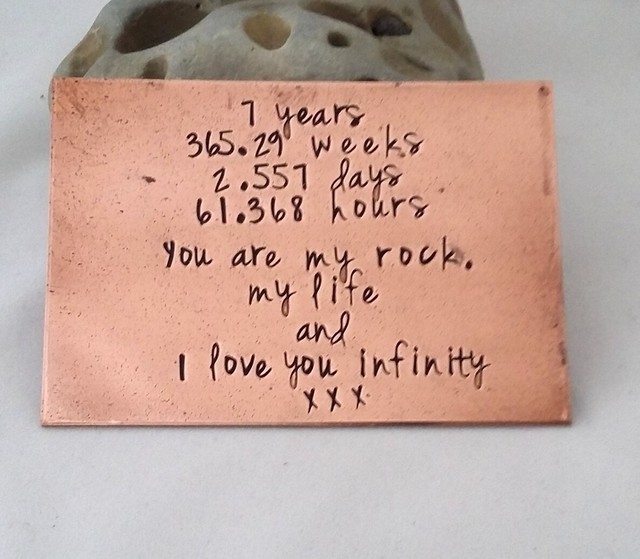 7 years
365.29 weeks
2.557 days
61.368 hours
you are my rock.
my life
and
I love you infinity
x x x